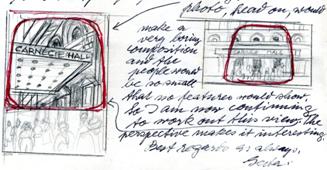 photo, head on, would
make a
very boring
composition
and the
people would
be so small
that no features would show.
So I am now continuing
to work out this view. The
perspective makes it interesting.
Best regards as always,
CARNEGIE HALL